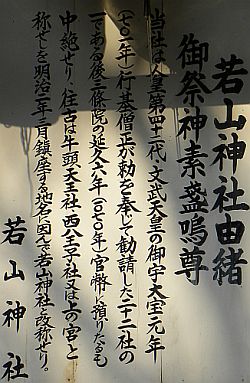 若山神社由緒
御祭神素盞嗚尊
当社は人皇第四十二代文武天皇の御宇大宝元年
(七〇一年)行基僧正が勅を奉じて勧請した二十二社の
一である後三條院の延久六年(一〇七〇年)官幣に預りたるも
中絶せり往古は牛頭天王社西八王子社又は上の宮と
称せしを明治二年二月鎮座する地名に因んで若山神社と改称せり。
若山神社